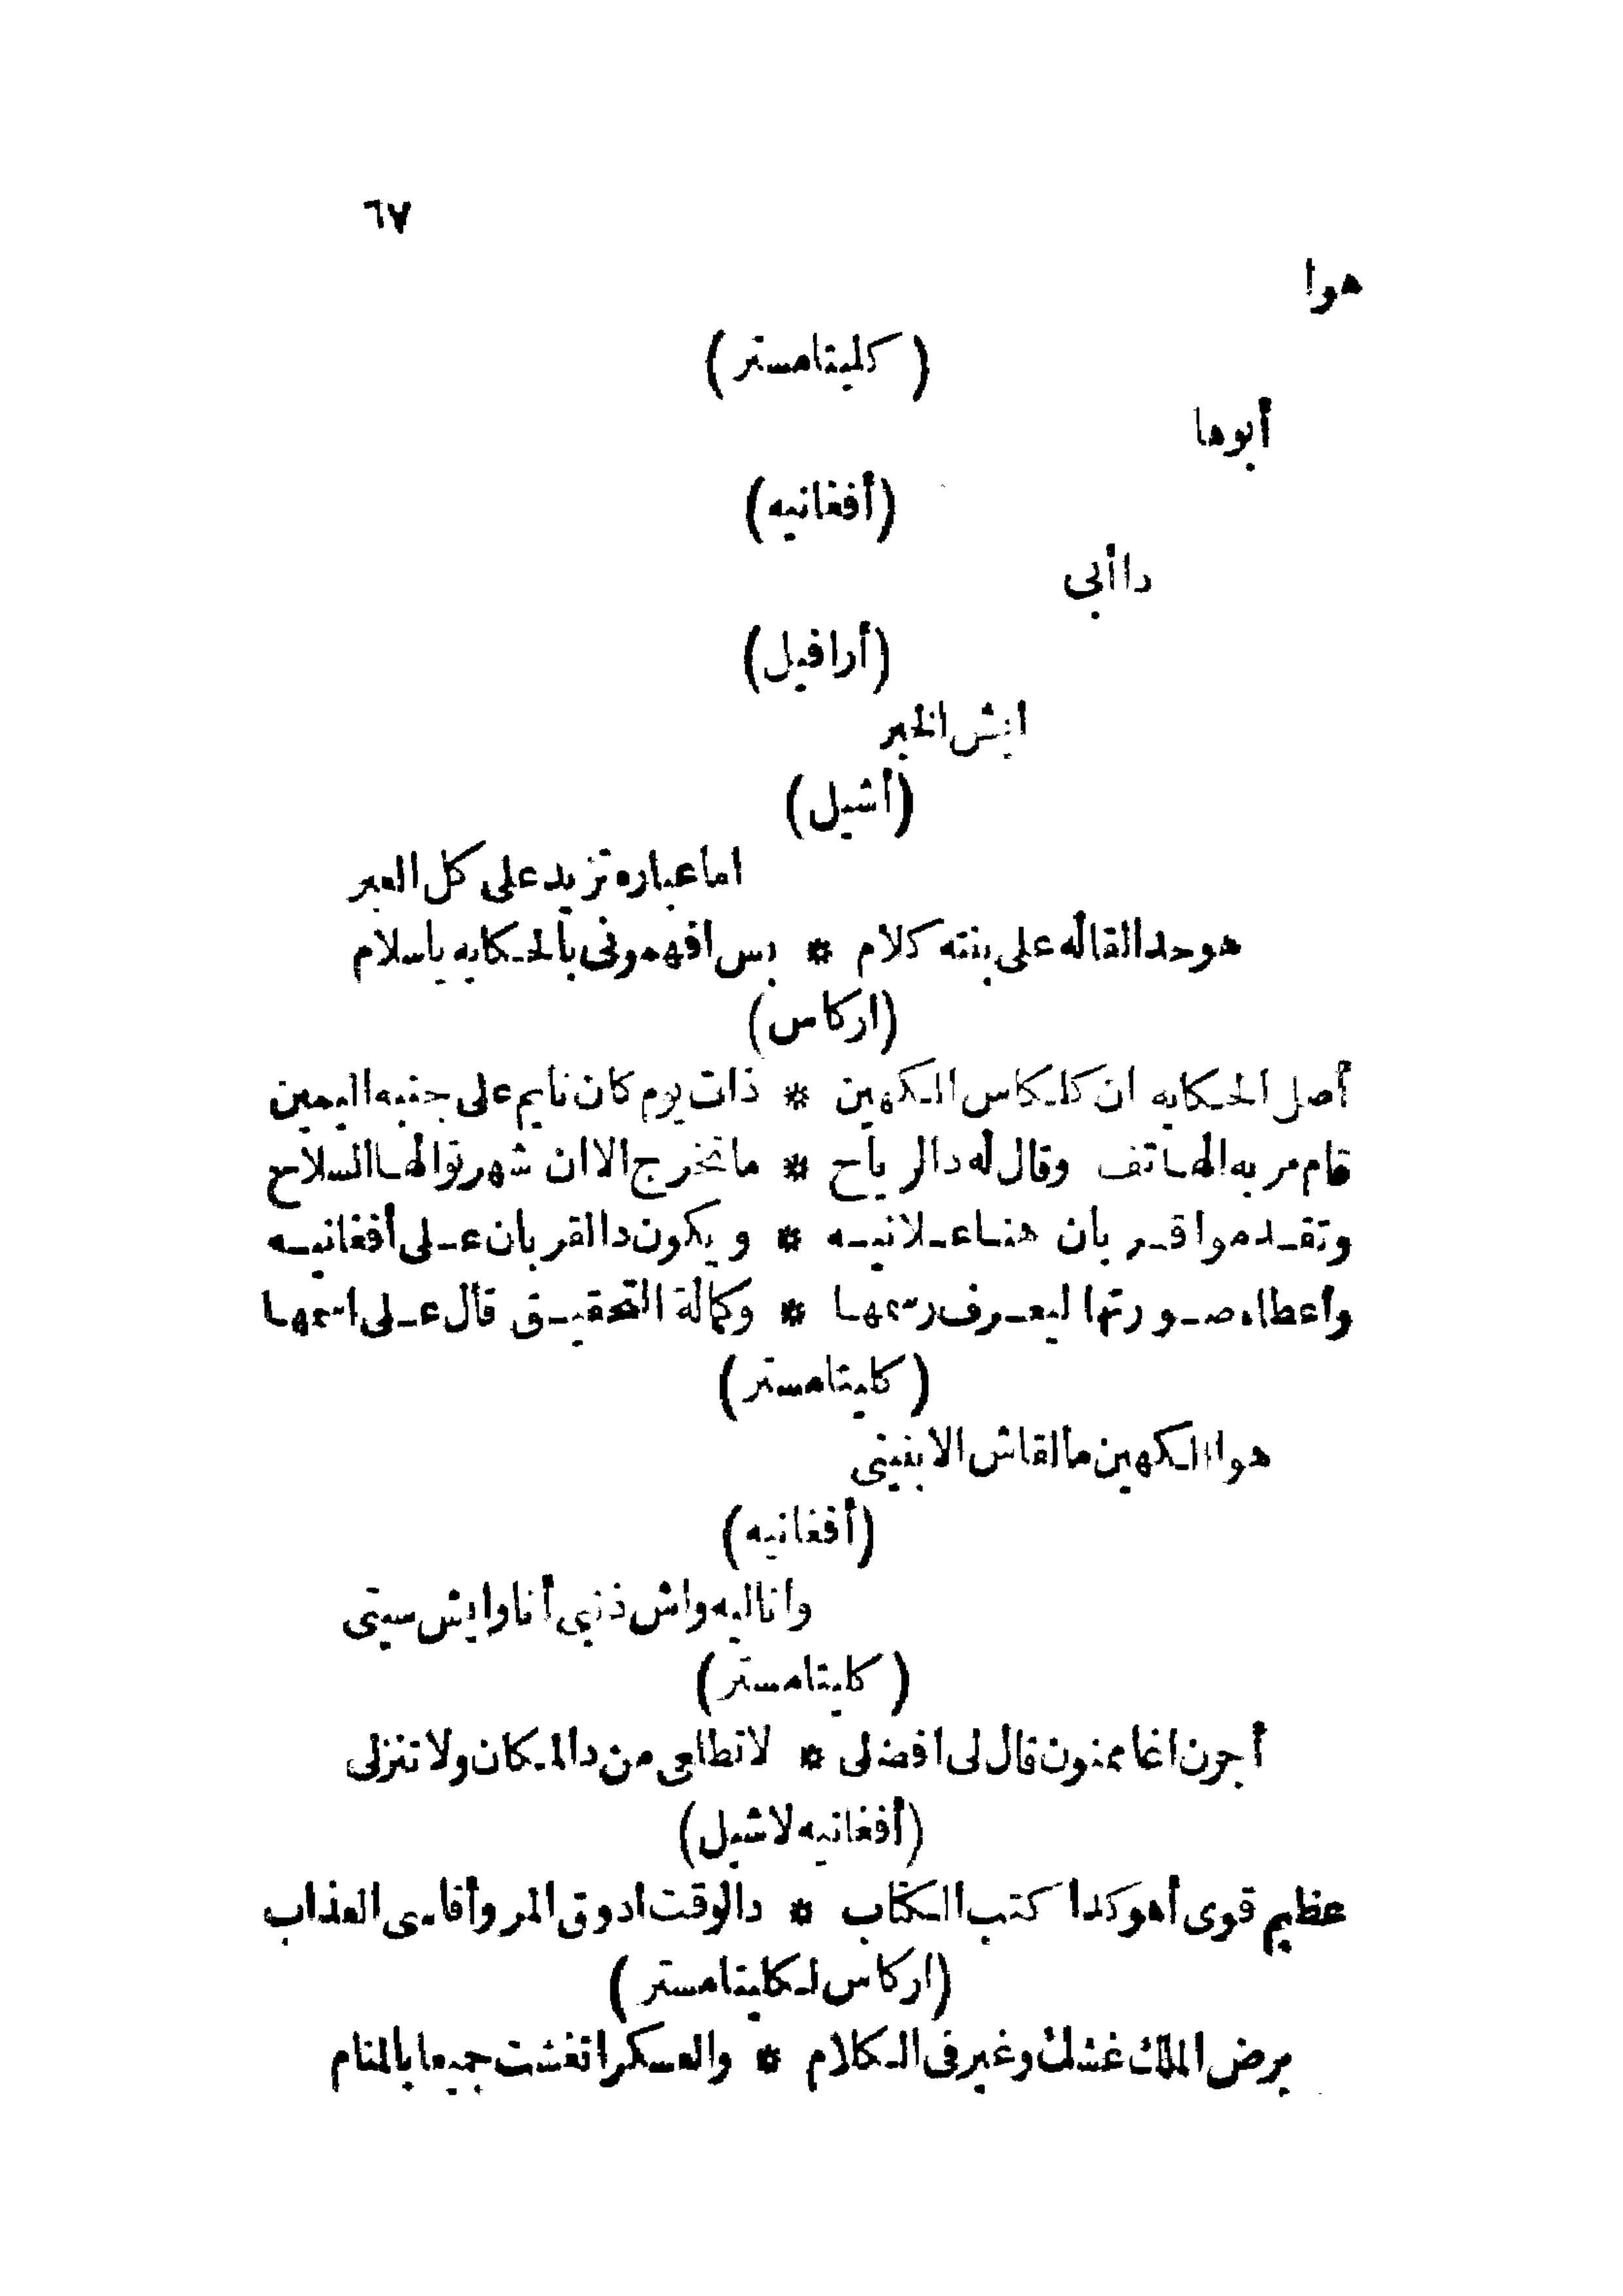 ٦٧
هوا
(كليتامستر)
أبوها
(أفغانيه)
دا أبى
(أرافيل)
ايش الخبر
(أشيل)
اما عباره تزيد على كل العبر
هو حد القاله على بنته كلام * بس افهمونى بالحكايه ياسلام
(اركاس)
أصل الحكايه ان كلكاس الكهين * ذات يوم كان نايم على جنبه اليمين
قام مر به الهاتف وقال له دا الرياح * ما تخرج الا ان شهرتوا لها السلاح
وتقدموا قربان هنا علانيه * ويكون دا القربان على أفغانيه
وأعطاه صورتها ليعرف رسمها * وكالة التحقيق قال على اسمها
(كليتامستر)
هوا الكهين مالقاش الا بنيتى
(أفغانيه)
وانا ليه واش ذنبى أنا وايش سيتى
(كليتامستر)
أجرن اغا ممنون قال لى افضلى * لا تطلعى من دا المكان ولا تنزلى
(أفغانيه لاشيل)
عظيم قوى أهو كدا كتب الكتاب * دا الوقت ادوق المر وأقاسى العذاب
(اركاس لكليتامستر)
برض الملك غشك وغير فى الكلام * والعسكر اتغشت جميعا بالمنام